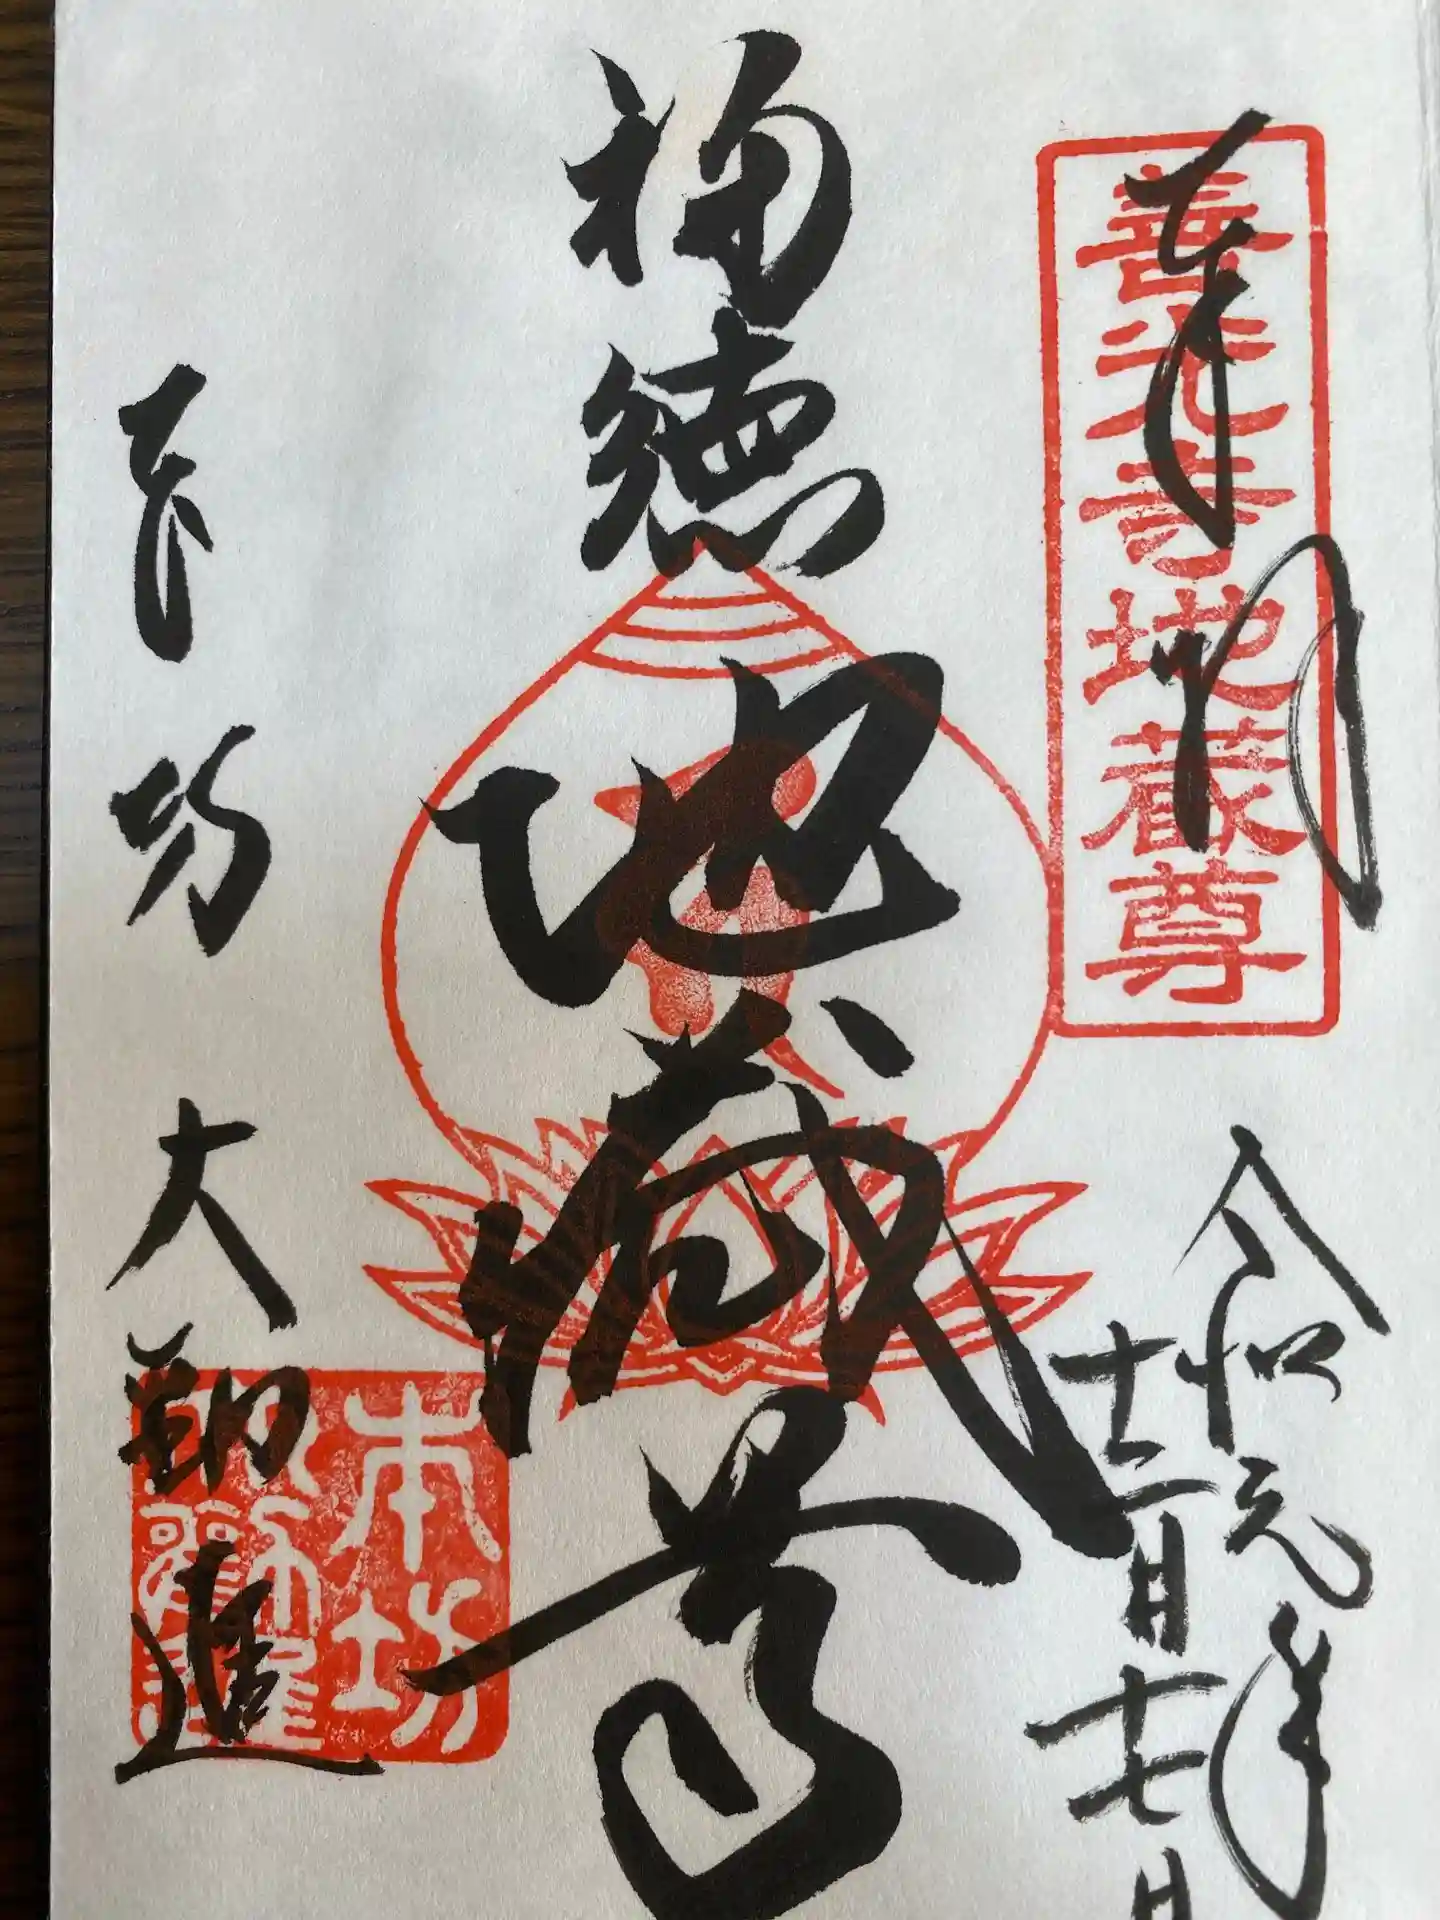 奉拝
善光寺地蔵尊
令和元年
十二月十七日
福徳
地蔵尊
本坊 大勧進
本坊